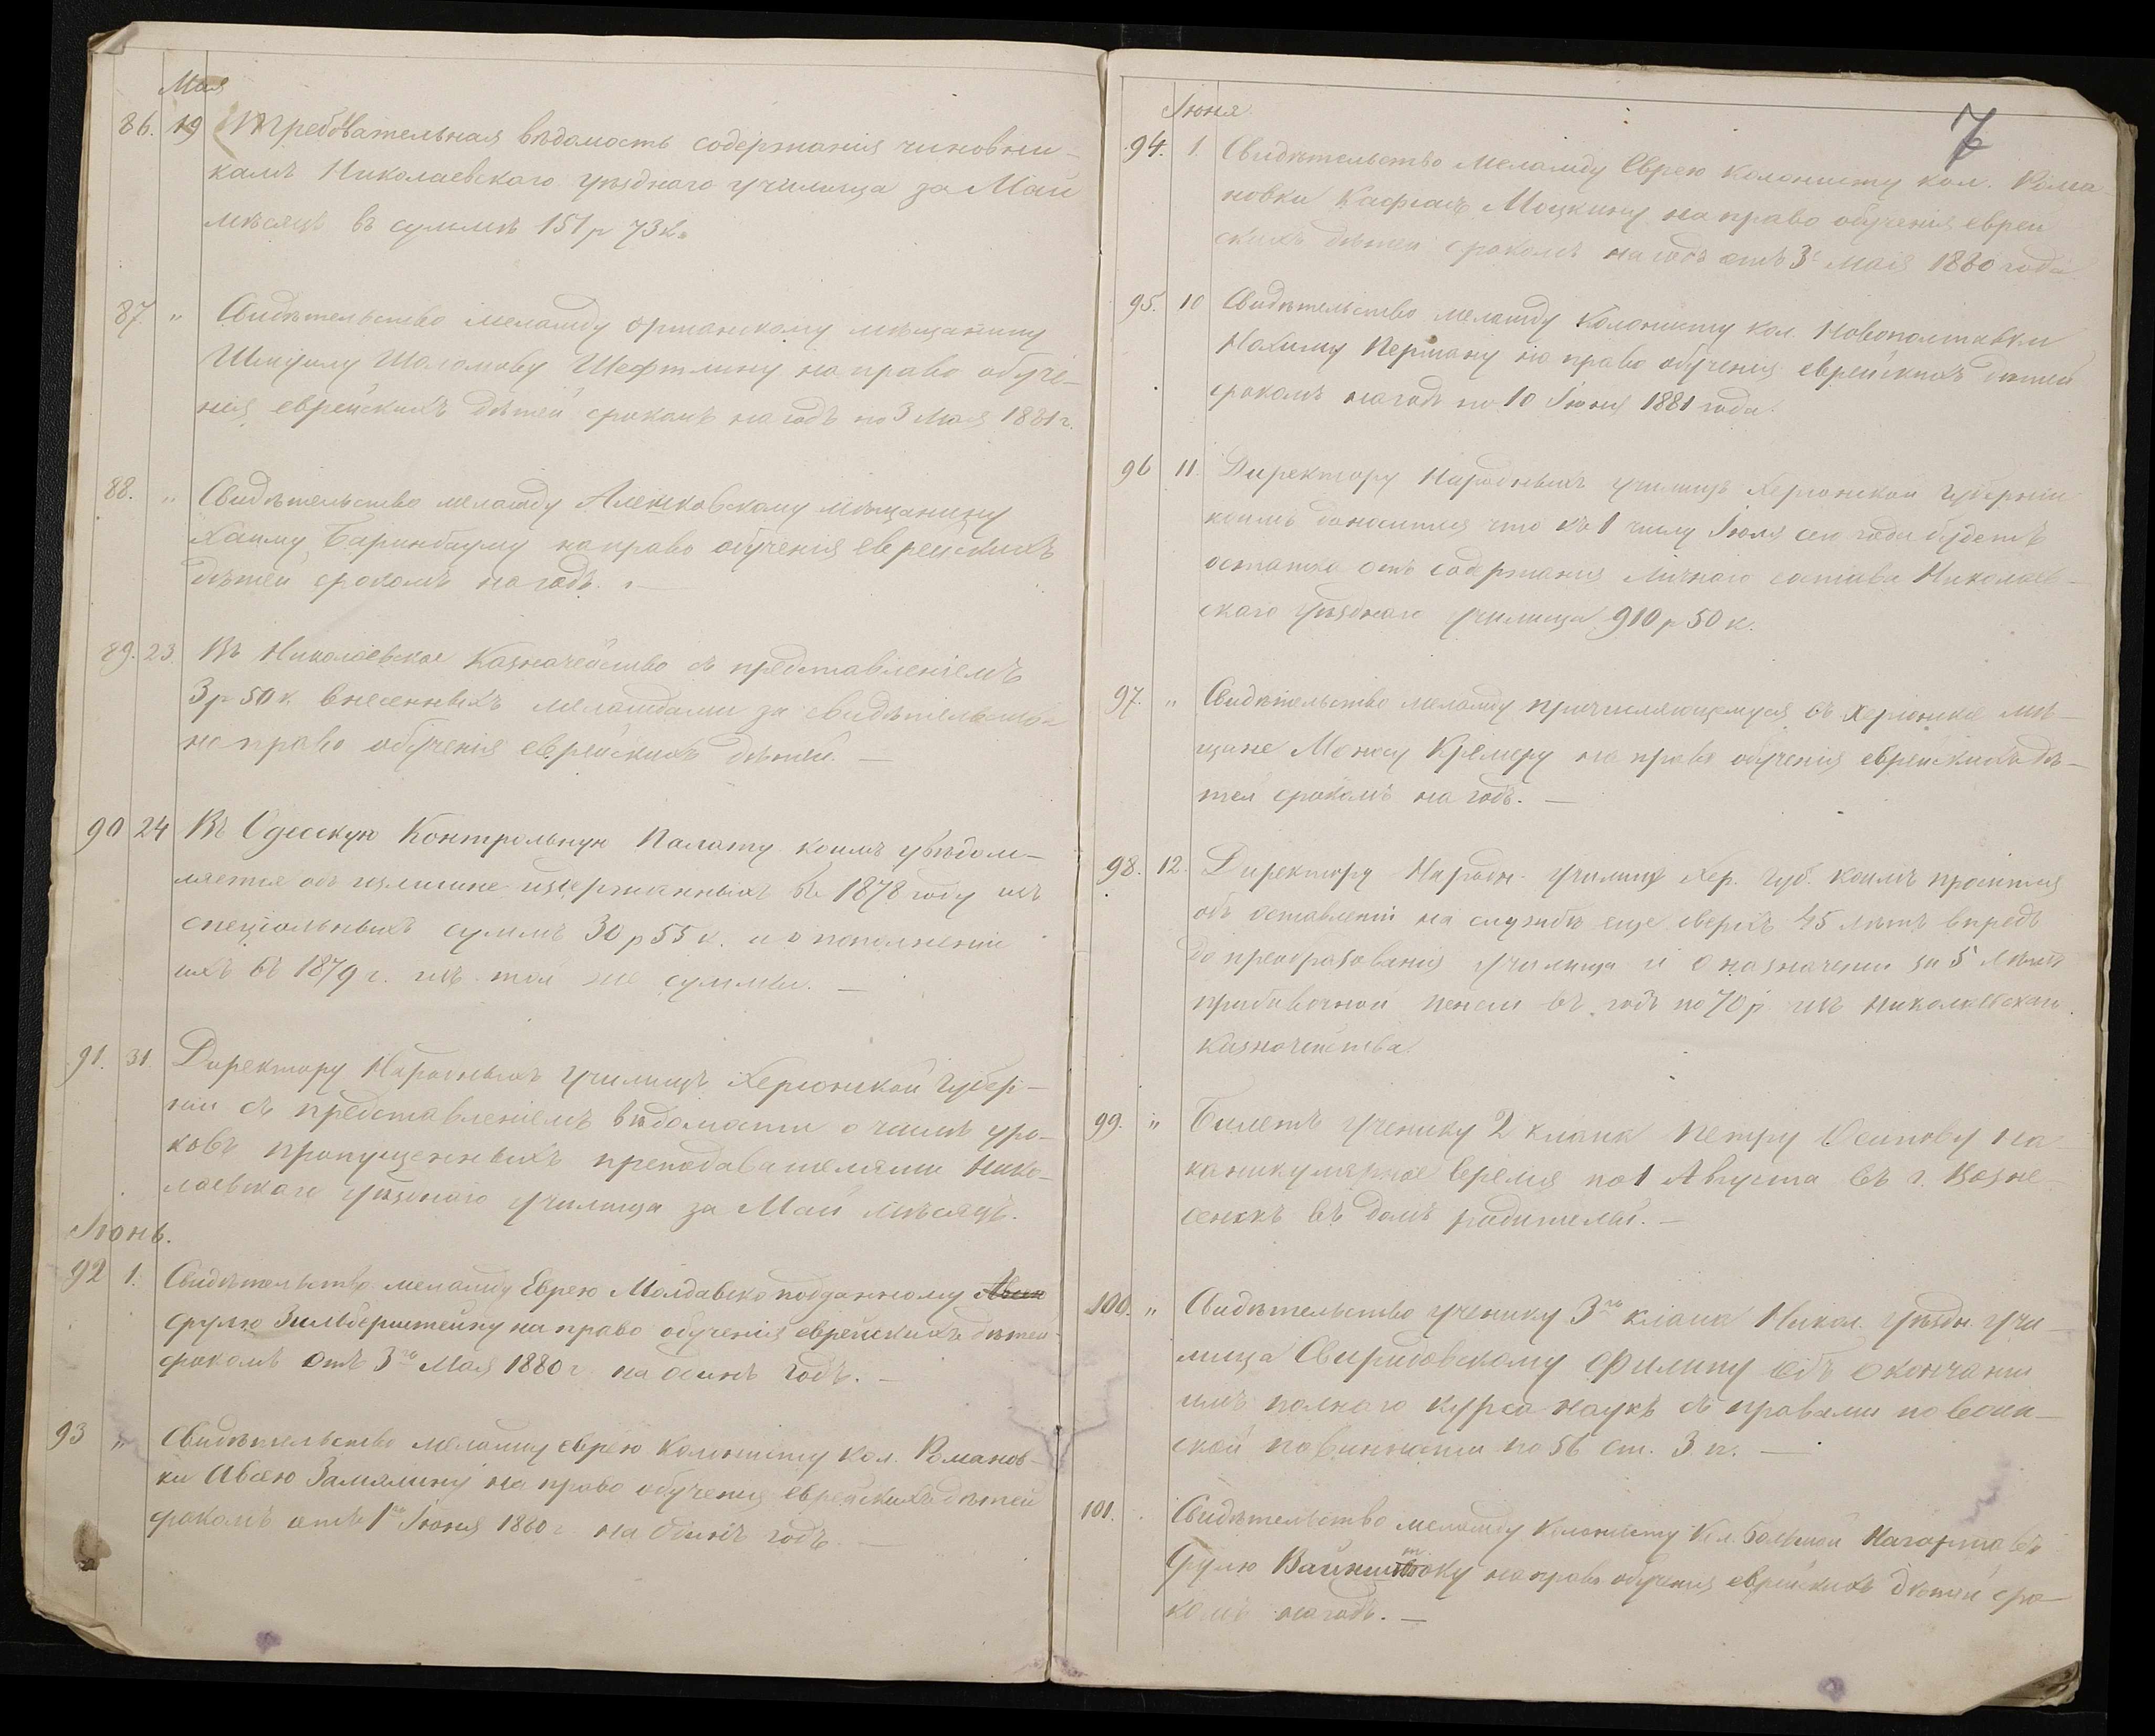 Мая
86. 19 Требовательная вѣдомость содержанія чиновни-
камъ Николаевскаго уѣзднаго училища за Май
мѣсяцъ въ суммѣ 151 р 73 к.
87. " Свидѣтельство меламду оршанскому мѣщанину
Шмуилу Шоломову Шефтлину на право обуче-
нія еврейскихъ дѣтей срокомъ на годъ по 3 Мая 1881 г.
88. " Свидѣтельство меламду Алешковскому мѣщанину
Хаиму Баринбауму на право обученія еврейскихъ
дѣтей срокомъ на годъ. —
89. 23. Въ Николаевское Казначейство съ представленіемъ
3 р 50 к внесенныхъ меламдами за свидѣтельства
на право обученія еврейскихъ дѣтей. —
90 24 Въ Одесскую Контрольную Палату коимъ увѣдом-
ляется объ излишне издержанныхъ въ 1878 году изъ
спеціольныхъ суммъ 30 р 55 к. и о пополненіи
ихъ въ 1879 г. изъ той же суммы. —
91. 31. Директору Народныхъ училищъ Херсонской губер-
ніи съ представленіемъ вѣдомости о числѣ уро-
ковъ пропущенныхъ преподавателями Нико-
лаевскаго уѣзднаго училища за Май мѣсяцъ.
Іюнь.
92 1. Свидѣтельство меламду Еврею Молдавскоподданному
Срулю Зильберштейну на право обученія еврейскихъ дѣтей
срокомъ отъ 3го Мая 1880 г. на одинъ годъ. —
93 " Свидѣтельство меламду еврею колонисту кол. Романов-
ки Овсею Замялину на право обученія еврейскихъ дѣтей
срокомъ отъ 1го Іюня 1880 г. на одинъ годъ. —
7
Іюня
94. 1. Свидѣтельство меламду Еврею колонисту кол. Рома
новки Моцкину на право обученія евреи
скихъ дѣтей срокомъ на годъ отъ 3 Мая 1880 года
95. 10 Свидѣтельство меламду Колонисту кол. Новополтавки
Нохиму Перману на право обученія еврейскихъ дѣтей
срокомъ на годъ по 10 Іюня 1881 года.
96 11. Директору Народныхъ училищъ Херсонской губерніи
коимъ доносится что къ 1 числу Іюля сего года будетъ
остатка отъ содержанія личнаго состава Николаев-
скаго уѣзднаго училища 910 р 50 к.
97. " Свидѣтельство меламду причисляющемуся въ Херсонкіе мѣ-
щане Крамеру на право обученія еврейскихъ дѣ-
тей срокомъ на годъ. —
98. 12. Директору Народн. училищъ Хер. губ. коимъ просится
объ оставленіи на службѣ еще сверхъ 45 лѣтъ впредь
до преобразованія училища и о назначеніи за 5 лѣтъ
прибавочной пенсіи въ годъ по 70 р изъ Николаевскаго
Казначейства.
99. " Билетъ ученику 2 класса Петру Осипову на
каникулярное время по 1 Августа въ г. Возне
сенскъ въ домъ родителей. —
100. " Свидѣтельство ученику 3го класса Никол. уѣздн. учи-
лища Свиридовскому Филипу объ окончаніи
имъ полнаго курса наукъ съ правами по воин-
ской повинности по 56 ст. 3 п. —
101. Свидѣтельство меламду Колонисту Кол. Большой Нагартавъ
Срулю Вайнштоку на право обученія еврейскихъ дѣтей сро-
комъ на годъ. —